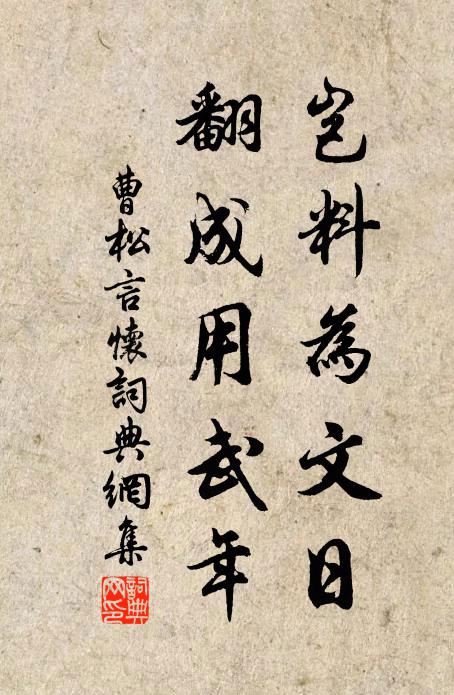 豈料為文日
翻成用武年
曹松言懷詞典網集
詞典
网印